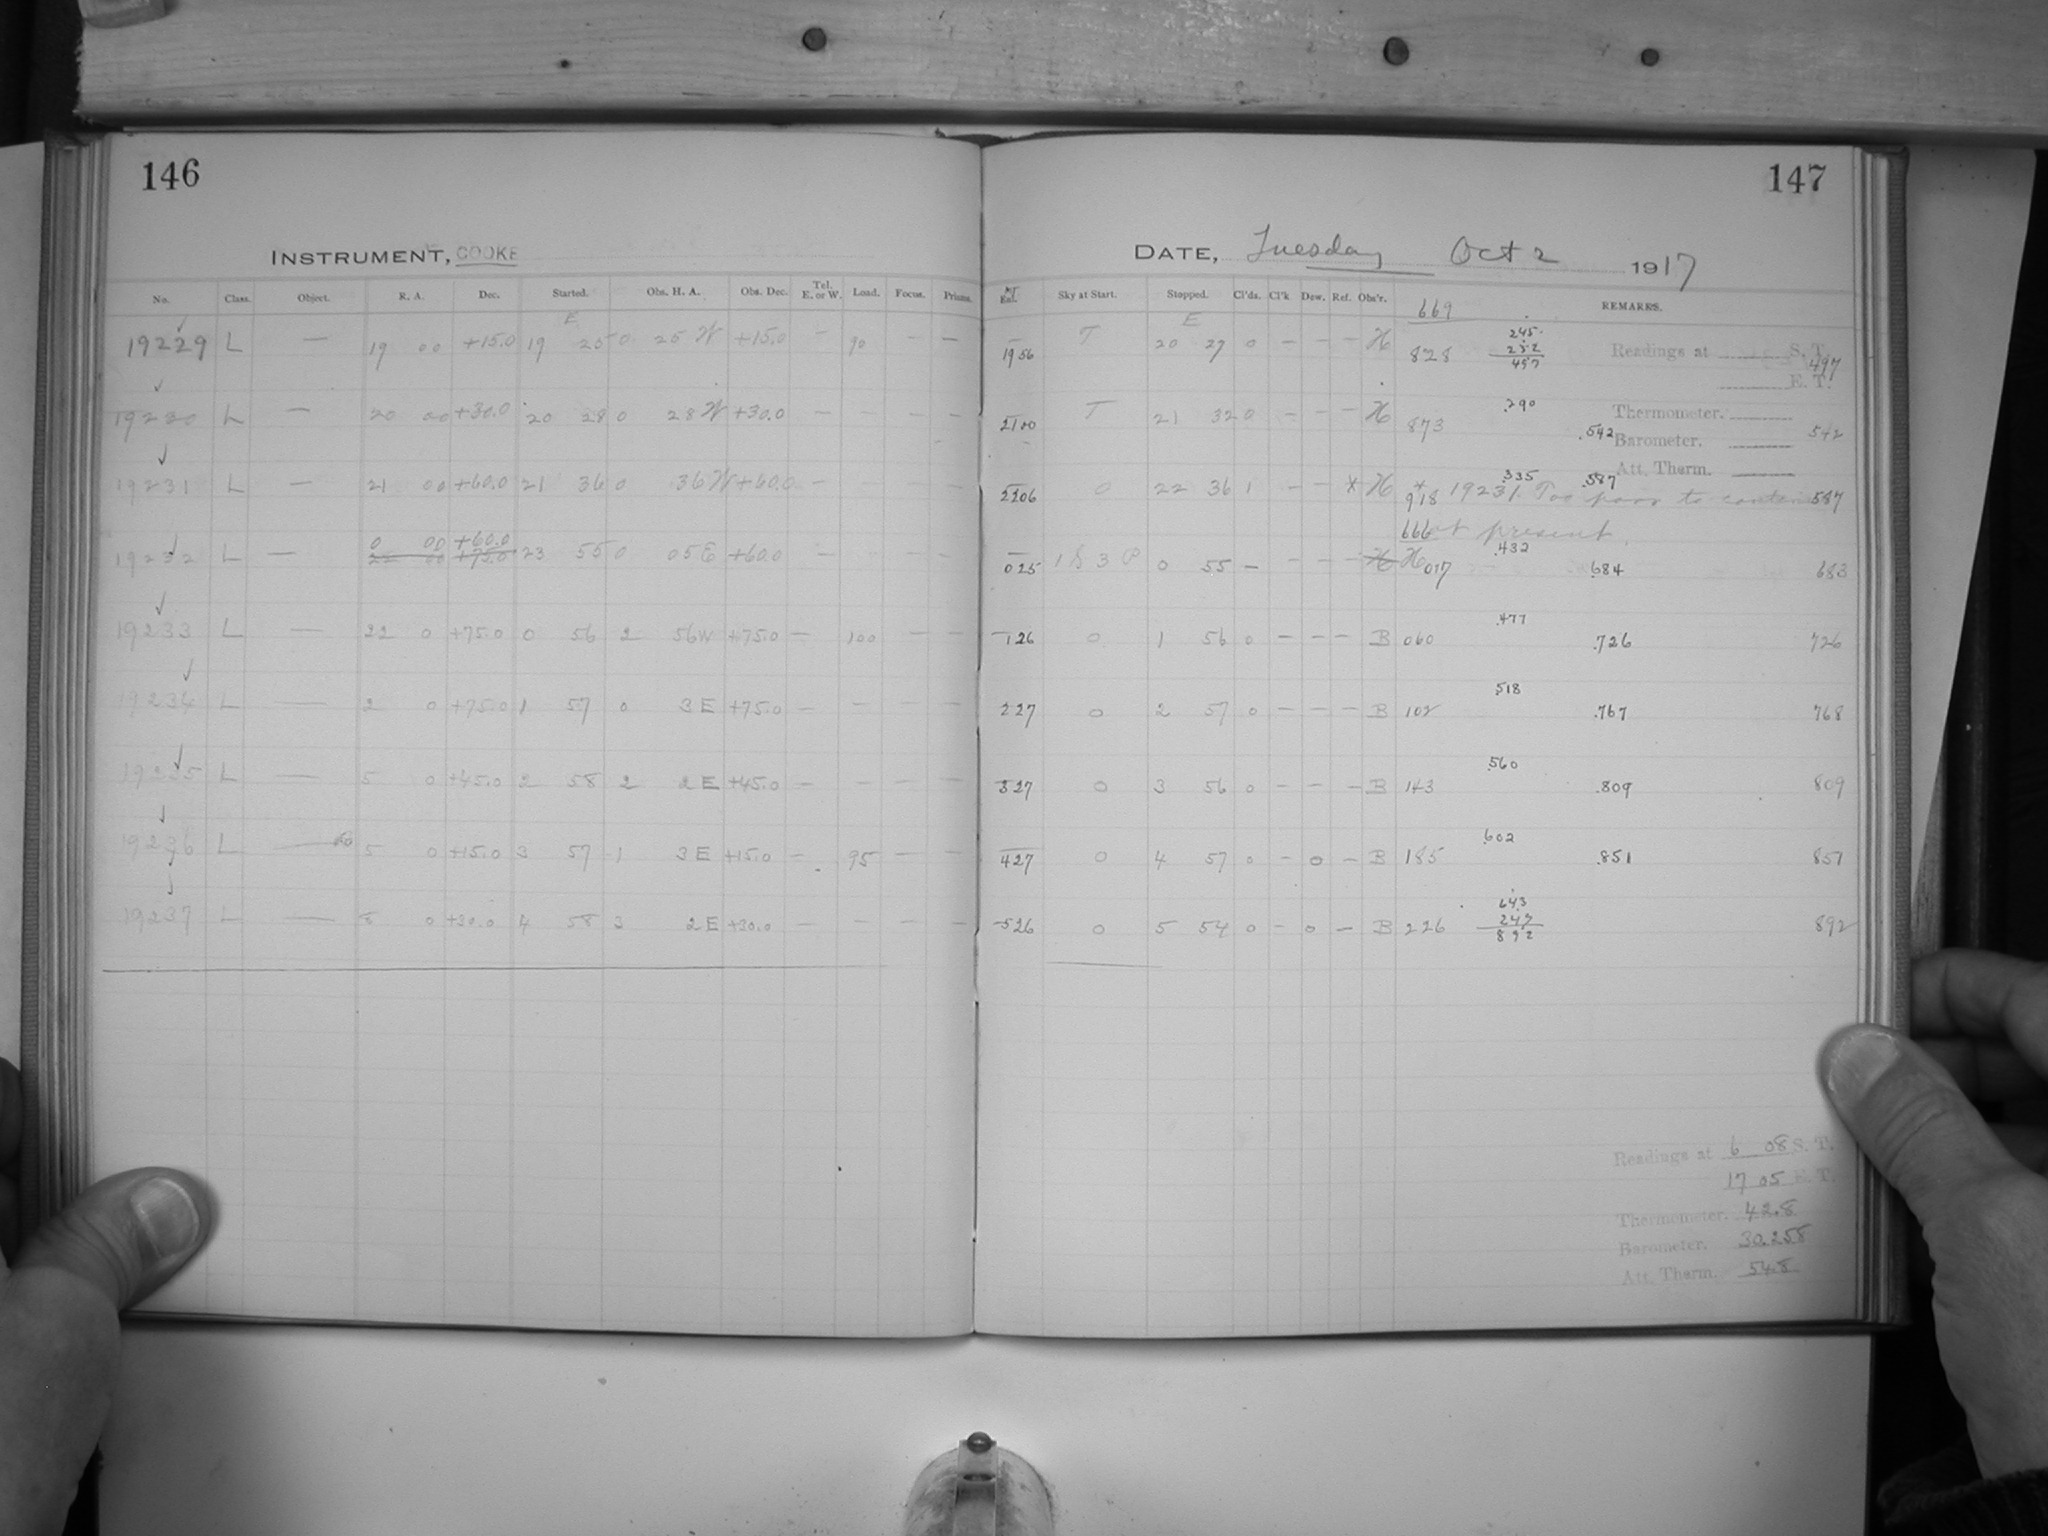 146
INSTRUMENT, COOKE
No. Class. Object. R. A. Dec. Started. Obs. H. A. Obs. Dec. Tel. E. or W. Load. Focus. Prisms.
E
19229 L — 19 00 +15.0 19 25 0 25 W +15.0 — 90 — —
19230 L — 20 00 +30.0 20 28 0 28 W +30.0 — — — —
19231 L — 21 00 +60.0 21 36 0 36 W +60.0 — — — —
0 00 +60.0
19232 L — 22 00 +75.0 23 55 0 05 E +60.0 —
19233 L — 22 0 +75.0 0 56 2 56 W +75.0 — 100 — —
19234 L — 2 0 +75.0 1 57 0 3 E +75.0 — — — —
19235 L — 5 0 +45.0 2 58 2 2 E +45.0 — — — —
19236 L — 5 0 +15.0 3 57 1 3 E +15.0 — 95 — —
19237 L — 8 0 +30.0 4 58 3 2 E +30.0 — — — —
147
DATE, Tuesday Oct 2 1917
Exp. Sky at Start. Stopped. Cl'ds. Cl'k Dew. Ref. Obs'r. 669 REMARKS.
E
245
1956 T 20 27 0 — — — H 828 252 Readings at S. T. 497
497
E. T.
290 Thermometer.
2100 T 21 32 0 — — — H 873 .542 Barometer. 542
.335 .587 Att. Therm.
2206 0 22 36 1 — — * H * 918 19231 Too poor to continue 587
666 at present.
.432
025 1 S 3 P 0 55 — — — — H H 017 .684 683
.477
126 0 1 56 0 — — — B 060 .726 726
.518
227 0 2 57 0 — — — B 102 .767 768
.560
327 0 3 56 0 — — — B 143 .809 809
.602
427 0 4 57 0 — 0 — B 185 .851 851
643
526 0 5 54 0 — 0 — B 226 249 892
892
Readings at 6 08 S. T.
17 05 E. T.
Thermometer. 42.8
Barometer. 30.258
Att. Therm. 54.8